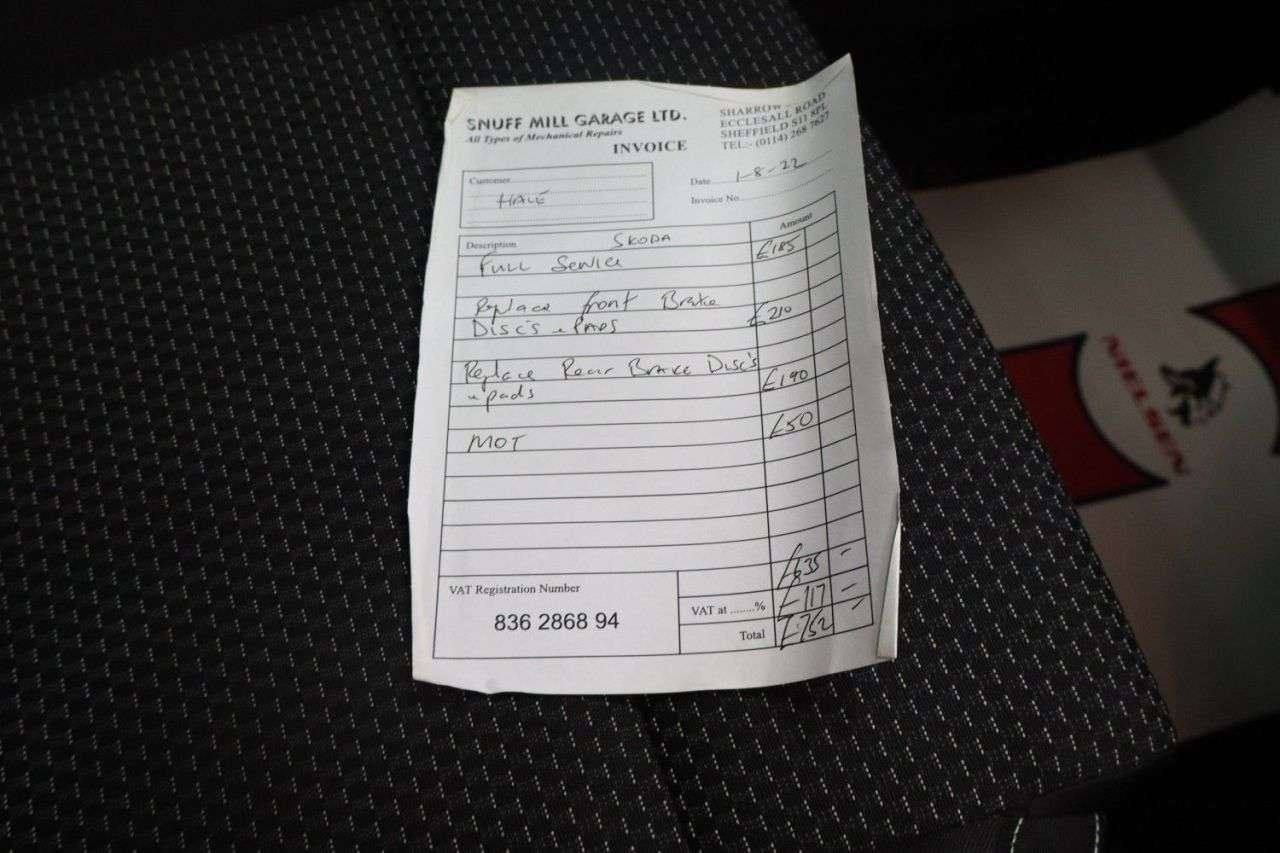 SNUFF MILL GARAGE LTD.
All Types of Mechanical Repairs
INVOICE
SHARROW
ECCLESALL ROAD
SHEFFIELD S11 8PL
TEL:- (0114) 268 7627
Customer
HALE
Date 1-8-22
Invoice No
Description SKODA Amount
FULL Service £185
Replace front Brake
Disc's & PADS £210
Replace Rear Brake Disc's
& pads £190
MOT £50
£635 -
VAT Registration Number
836 2868 94
VAT at ........% £117 -
Total £752 -
NIELSEN